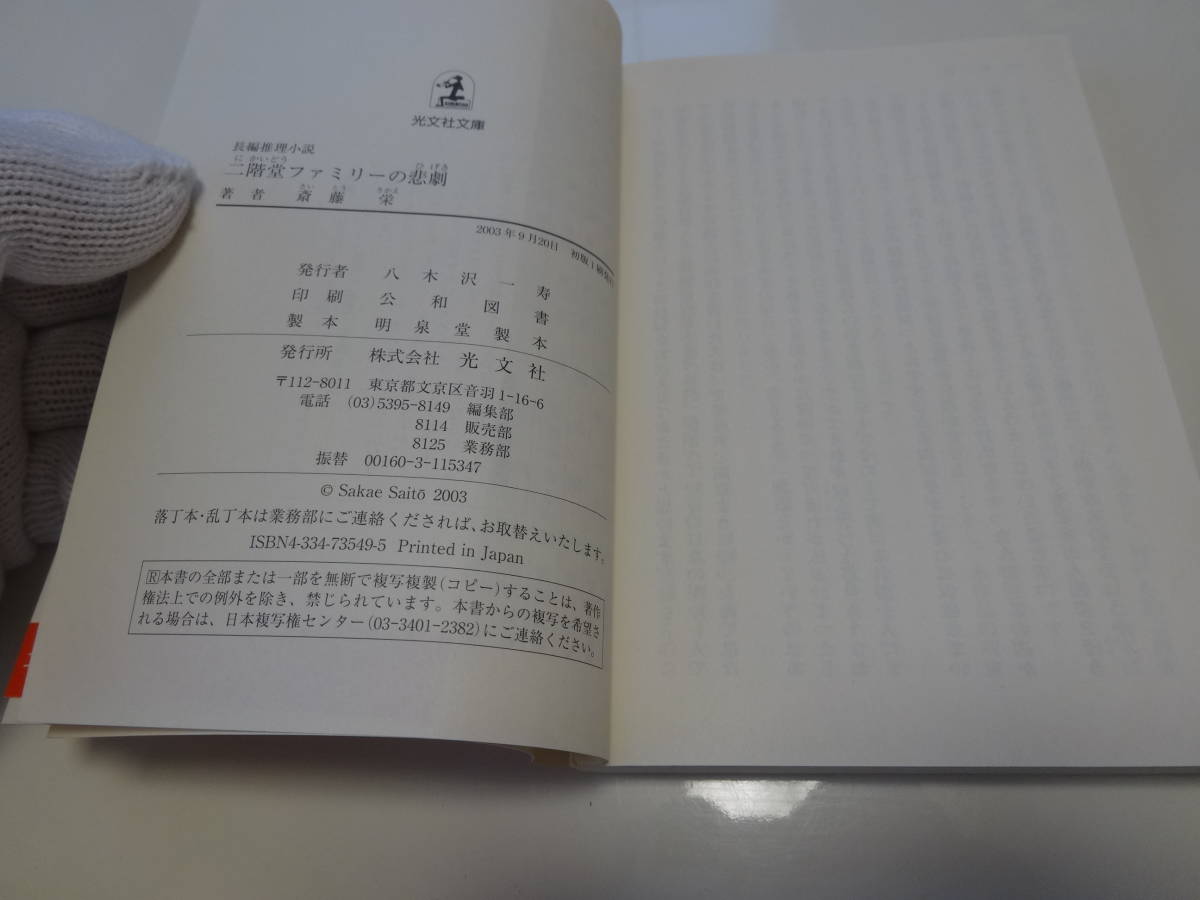 光文社文庫
長編推理小説
に かいどう ひ げき
二階堂ファミリーの悲劇
さい とう さかえ
著者 斎藤 栄
2003年9月20日 初版1刷発行
発行者 八木沢一寿
印刷 公和図書
製本 明泉堂製本
発行所 株式会社 光文社
〒112-8011 東京都文京区音羽1-16-6
電話 (03)5395-8149 編集部
8114 販売部
8125 業務部
振替 00160-3-115347
© Sakae Saitō 2003
落丁本・乱丁本は業務部にご連絡くだされば、お取替えいたします。
ISBN4-334-73549-5 Printed in Japan
Ⓡ本書の全部または一部を無断で複写複製(コピー)することは、著作
権法上での例外を除き、禁じられています。本書からの複写を希望さ
れる場合は、日本複写権センター(03-3401-2382)にご連絡ください。